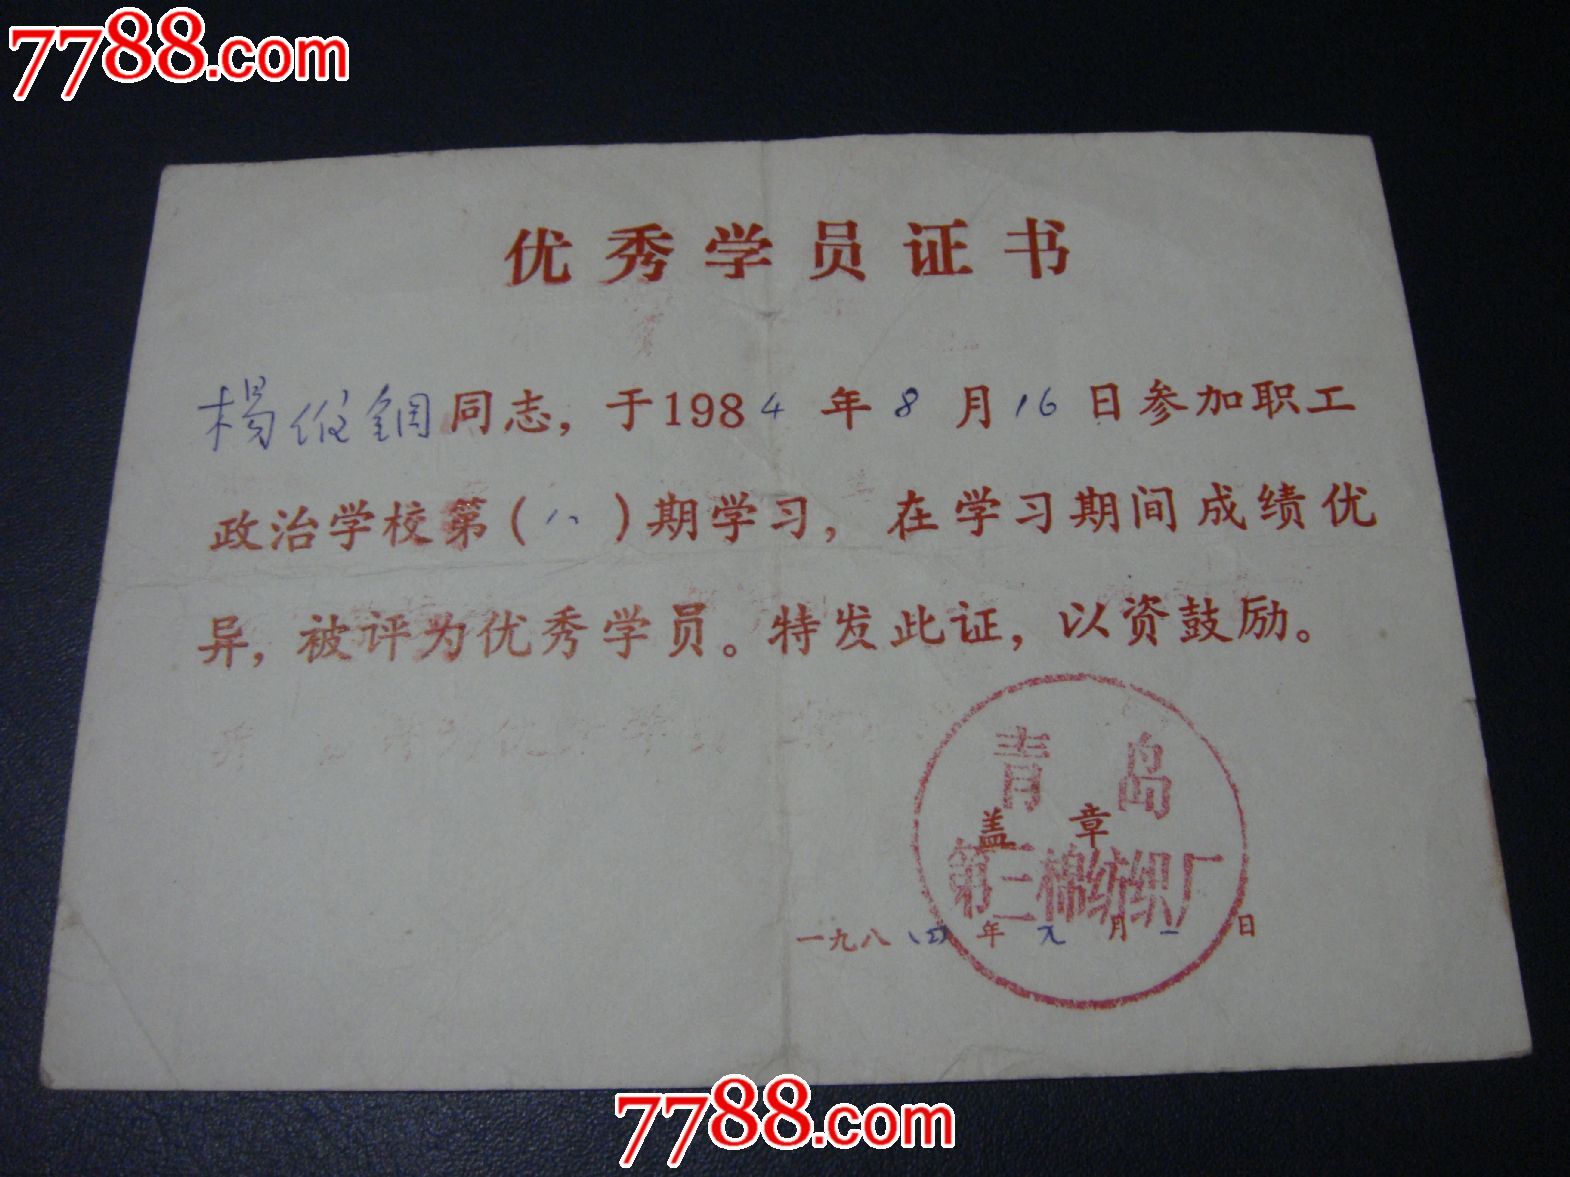 7788.com
优秀学员证书
楊同志，于1984年8月16日参加职工
政治学校第（八）期学习，在学习期间成绩优
异，被评为优秀学员。特发此证，以资鼓励。
青岛
盖章
第三棉纺织厂
一九八四年九月一日
7788.com